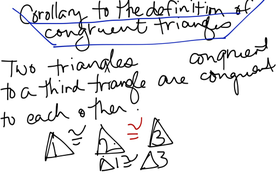 Corollary to the definition of
congruent triangles
Two triangles congruent
to a third triangle are congruent
to each other.
1 ≅ 2 ≅ 3
Δ1 ≅ Δ3